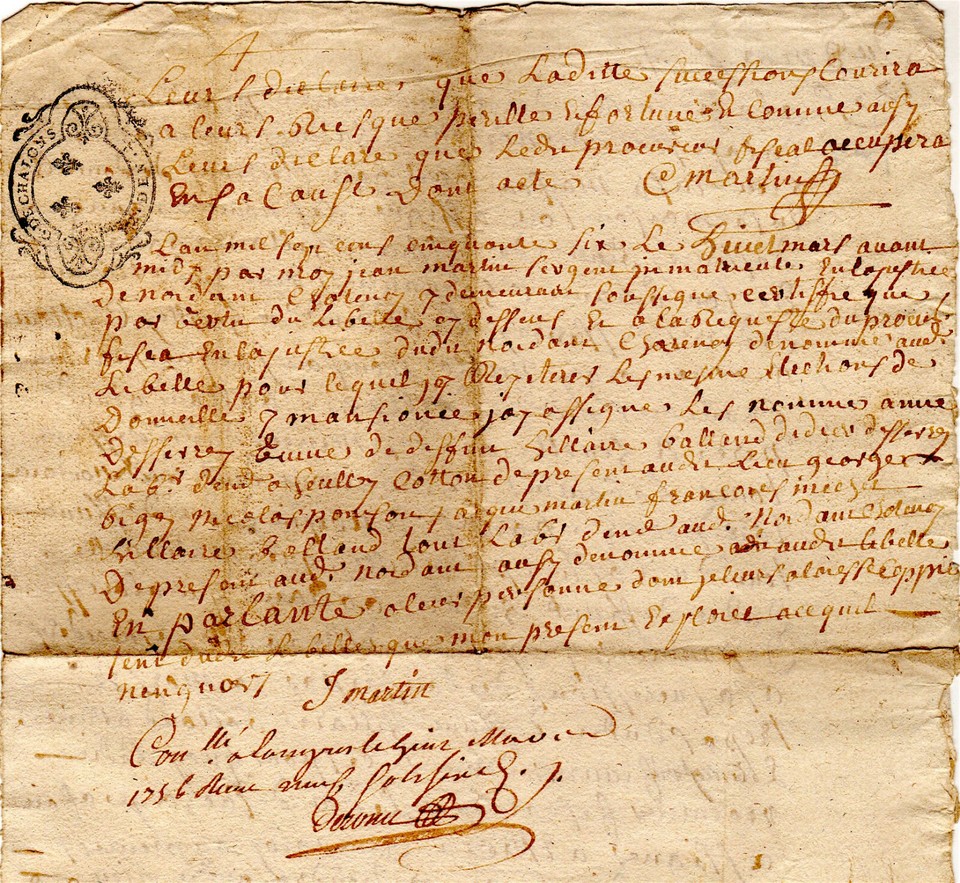 Leurs declare que Laditte succession Courira
a leurs Risque perille Et fortune Et comme aussy
Leurs declare que Ledit procureur fiscal occupera
En sa Cause dont acte Martin
G. DE CHALONS GEN.
Lan mil sept cens cinquante six Le huict mars avant
midy par moy jean martin sergent immatricule En la justice
de nordant Chatenoy y demeurant soussigne certiffie que
par vertu du Libelle cy dessus Et a la Requeste du procur
fiscal En la justice dudit nordant Chatenoy denomme audt
Libelle pour lequel jay Reyterer Les mesme Elections de
Domicille y mansionée jay assigne Les nomme anne
Desserrey veuve de deffunt hillaire balland didier desserrey
Labr. demt a heuilley Cotton de present audit Lieu george
bigey nicolas ponsont jacque martin francoies
hillaire balland tout Labr demt audt nordant
De present audt nordant aussy denomme audit libelle
En parlante a leur personne dont je leurs a laisse Coppie
tent dudit Libelle que mon present Exploict acequil
nen gnore J martin
Conllé a Langres le huit Mars
1756 Recu neuf sols six d.